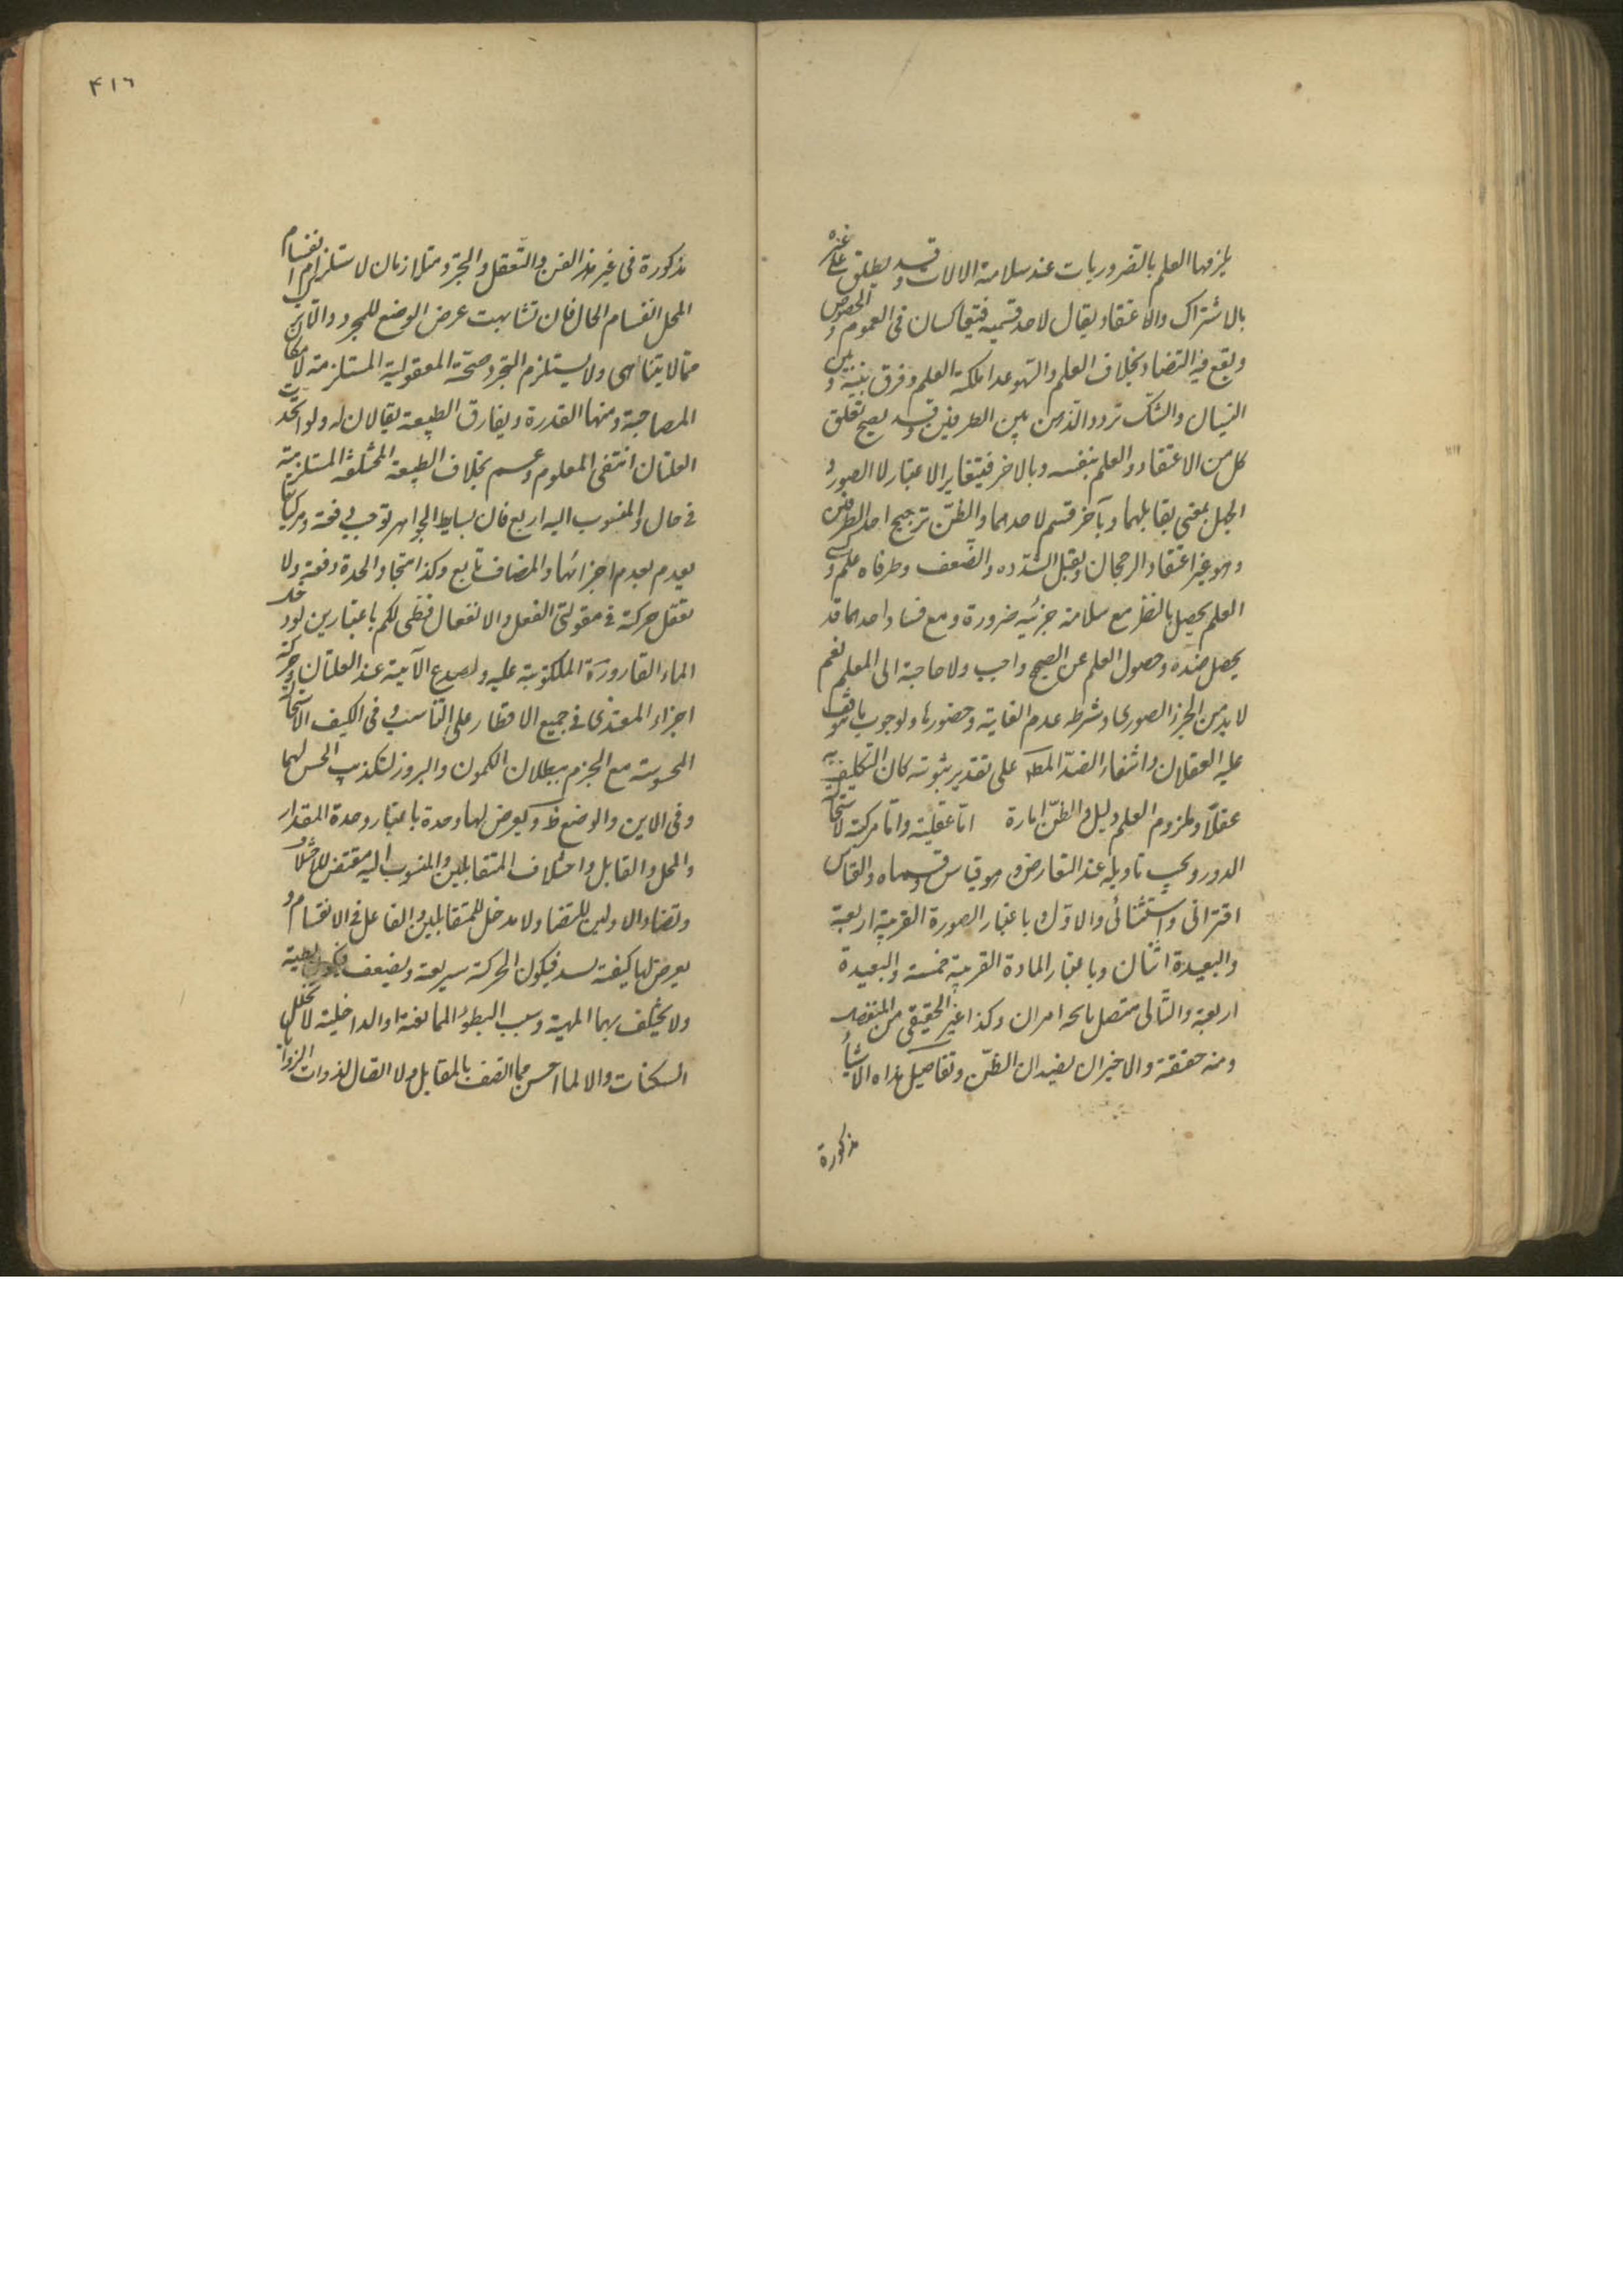 يلزمها العلم بالضروريات عند سلامة الالات وقد يطلق على غيره
بالاشتراك والاعتقاد يقال لاحد قسميه فيتعاكسان فى العموم والخصوص
ويقع فيه التضاد بخلاف العلم والسهو عدم ملكة العلم وفرق بينه وبين
النسيان والشك تردد الذهن بين الطرفين وقد يصح تعلق
كل من الاعتقاد والعلم بنفسه وبالاخر فيتغاير الاعتبار لا الصور و
الجهل بمعنى يقابلهما وبآخر قسم لاحدهما والظن ترجيح احد الطرفين
وهو غير اعتقاد الرجحان ويقبل الشدة والضعف وطرفاه علم و
العلم يحصل بالنظر مع سلامة جزئيه ضرورة ومع فساد احدهما قد
يحصل ضده وحصول العلم عن الصحيح واجب ولا حاجة الى المعلم نعم
لا بد من الجزء الصورى وشرطه عدم الغاية وحضورها ولوجوب ما يتوقف
عليه العقلان وانتفاء الضد المط على تقدير ثبوته كان التكليف به
عقلا وملزوم العلم دليل والظن امارة اما عقلية واما مركبة لاستحالة
الدور ويجب تاويله عند التعارض وهو قياس وقسماه والقياس
اقترانى واستثنائى والاول باعتبار الصورة القريبة اربعة
والبعيدة اثنان وباعتبار المادة القريبة خمسة والبعيدة
اربعة والثانى متصل ناتجه امران وكذا غير الحقيقى من المنفصل
ومنه حقيقة والاخيران يفيدان الظن وتفاصيل هذه الاشياء
مذكورة
٤١٦
مذكورة فى غير هذا الفن والتعقل والتجرد متلازمان لاستلزام انقسام
المحل انقسام الحال فان تشابهت عرض الوضع للمجرد والا تركب
مما لا يتناهى ولاستلزام التجرد صحة المعقولية المستلزمة لامكان
المصاحبة ومنها القدرة ويفارق الطبيعة يقالان له ولو اتحدت
العلتان انتفى المعلوم وعم بخلاف الطبيعة المختلفة المستلزمة
فى حال والمنسوب اليه اربع فان بسايط الجواهر توجد دفعة ومركباتها
يعدم بعدم اجزائها والمضاف تابع وكذا متى والجدة دفعة ولا
تعقل حركة فى مقولتى الفعل والانفعال ففى الكم باعتبارين لدخول
الماء القارورة المكبوبة عليه ولصدع الآنية عند الغليان وحركة
اجزاء المغتذى فى جميع الاقطار على التناسب وفى الكيف للاستحالة
المحسوسة مع الجزم ببطلان الكمون والبروز لتكذيب الحس لهما
وفى الاين والوضع ظ ويعرض لها وحدة باعتبار وحدة المقدار
والمحل والقابل واختلاف المتقابلين والمنسوب اليه مقتض للاختلاف
وتضاد الاولين للتضاد ولا مدخل للمتقابلين والفاعل فى الانقسام و
يعرض لها كيفية تشتد فيكون الحركة سريعة وتضعف فيكون بطيئة
ولا يختلف بهما المهية وسبب البطؤ الممانعة او الداخلية لا تخلل
السكنات والا لما احس بما اتصف بالمقابل ولا اتصال لذوات الزوايا